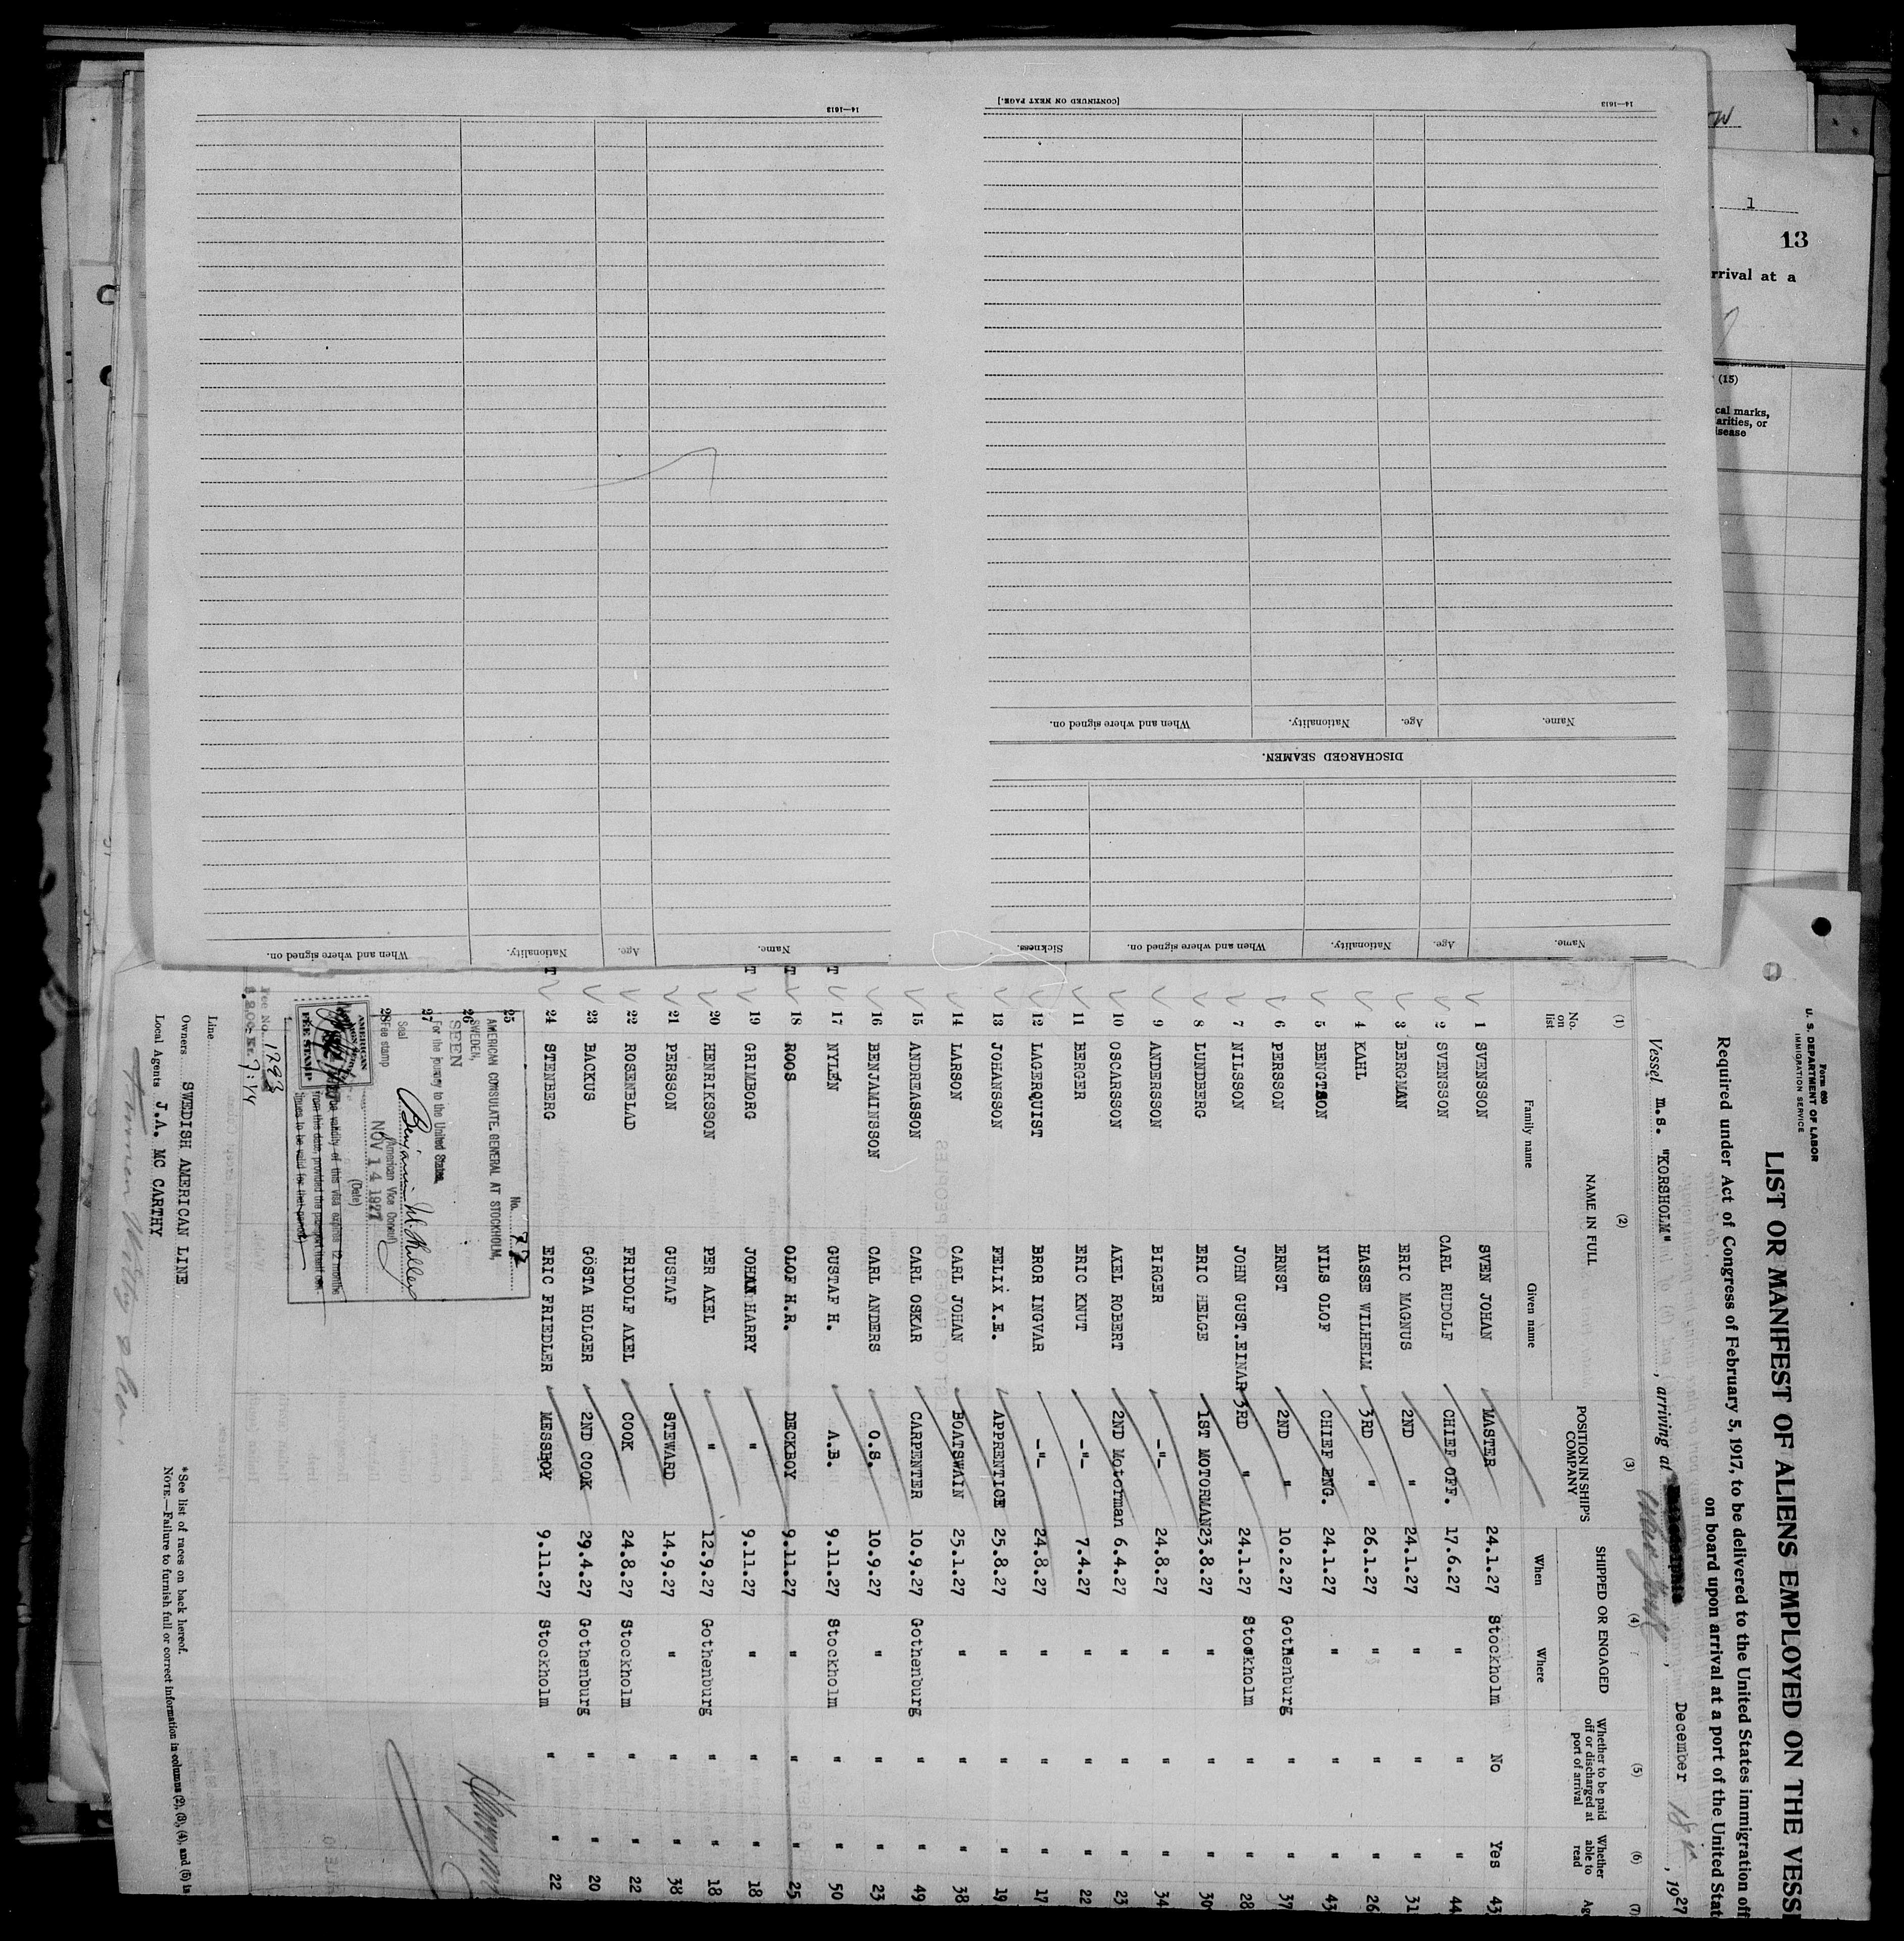 14—1613
14—1613
[CONTINUED ON NEXT PAGE.]
Name.
Age.
Nationality.
When and where signed on.
DISCHARGED SEAMEN.
Name.
Age.
Nationality.
When and where signed on.
Sickness.
Name.
Age.
Nationality.
When and where signed on.
1
13
rrival at a
(15)
cal marks,
arities, or
isease
Form 680
U. S. DEPARTMENT OF LABOR
IMMIGRATION SERVICE
LIST OR MANIFEST OF ALIENS EMPLOYED ON THE VESSE
Required under Act of Congress of February 5, 1917, to be delivered to the United States immigration off
on board upon arrival at a port of the United Stat
Vessel m.s. "KORSHOLM", arriving at , December 18, 1927
(1) (2) (3) (4) (5) (6) (7)
No. on list NAME IN FULL POSITION IN SHIP'S COMPANY SHIPPED OR ENGAGED Whether to be paid off or discharged at port of arrival Whether able to read Age
Family name Given name When Where
1 SVENSSON SVEN JOHAN MASTER 24.1.27 Stockholm No Yes 43
2 SVENSSON CARL RUDOLF CHIEF OFF. 17.6.27 " " " 44
3 BERGMAN ERIC MAGNUS 2ND " 24.1.27 " " " 31
4 KAHL HASSE WILHELM 3RD " 26.1.27 " " " 26
5 BENGTSON NILS OLOF CHIEF ENG. 24.1.27 " " " 43
6 PERSSON ERNST 2ND " 10.2.27 Gothenburg " " 37
7 NILSSON JOHN GUST.EINAR 3RD " 24.1.27 Stockholm " " 28
8 LUNDBERG ERIC HELGE 1ST MOTORMAN 23.8.27 " " " 30
9 ANDERSSON BIRGER -"- 24.8.27 " " " 34
10 OSCARSSON AXEL ROBERT 2ND Motorman 6.4.27 " " " 23
11 BERGER ERIC KNUT -"- 7.4.27 " " " 22
12 LAGERQUIST BROR INGVAR -"- 24.8.27 " " " 17
13 JOHANSSON FELIX X.E. APPRENTICE 25.8.27 " " " 19
14 LARSON CARL JOHAN BOATSWAIN 25.1.27 " " " 38
15 ANDREASSON CARL OSKAR CARPENTER 10.9.27 Gothenburg " " 49
16 BENJAMINSSON CARL ANDERS O.S. 10.9.27 " " " 23
T 17 NYLÉN GUSTAF H. A.B. 9.11.27 Stockholm " " 50
T 18 ROOS OLOF H.R. DECKBOY 9.11.27 " " " 25
T 19 GRIMBORG JOHAN HARRY " 9.11.27 " " " 18
20 HENRIKSSON PER AXEL " 12.9.27 Gothenburg " " 18
21 PERSSON GUSTAF STEWARD 14.9.27 " " " 38
22 ROSENBLAD FRIDOLF AXEL COOK 24.8.27 Stockholm " " 22
23 BACKUS GÖSTA HOLGER 2ND COOK 29.4.27 Gothenburg " " 20
T 24 STENBERG ERIC FRIEDLER MESSBOY 9.11.27 Stockholm " " 22
25
26
27
28
No. 72
AMERICAN CONSULATE GENERAL AT STOCKHOLM,
SWEDEN,
SEEN
For the journey to the United States
Seal
American Vice Consul
Fee stamp
(Date)
NOV 14 1927
The validity of this visa expires 12 months
from this date, provided the passport itself con-
tinues to be valid for that period
AMERICAN
FEE STAMP
Fee No. 1793
$ 2.00: Kr. 7:44
Line
Owners SWEDISH AMERICAN LINE
Local Agents J.A. MC CARTHY
*See list of races on back hereof.
NOTE.—Failure to furnish full or correct information in columns (2), (3), (4), and (5) is